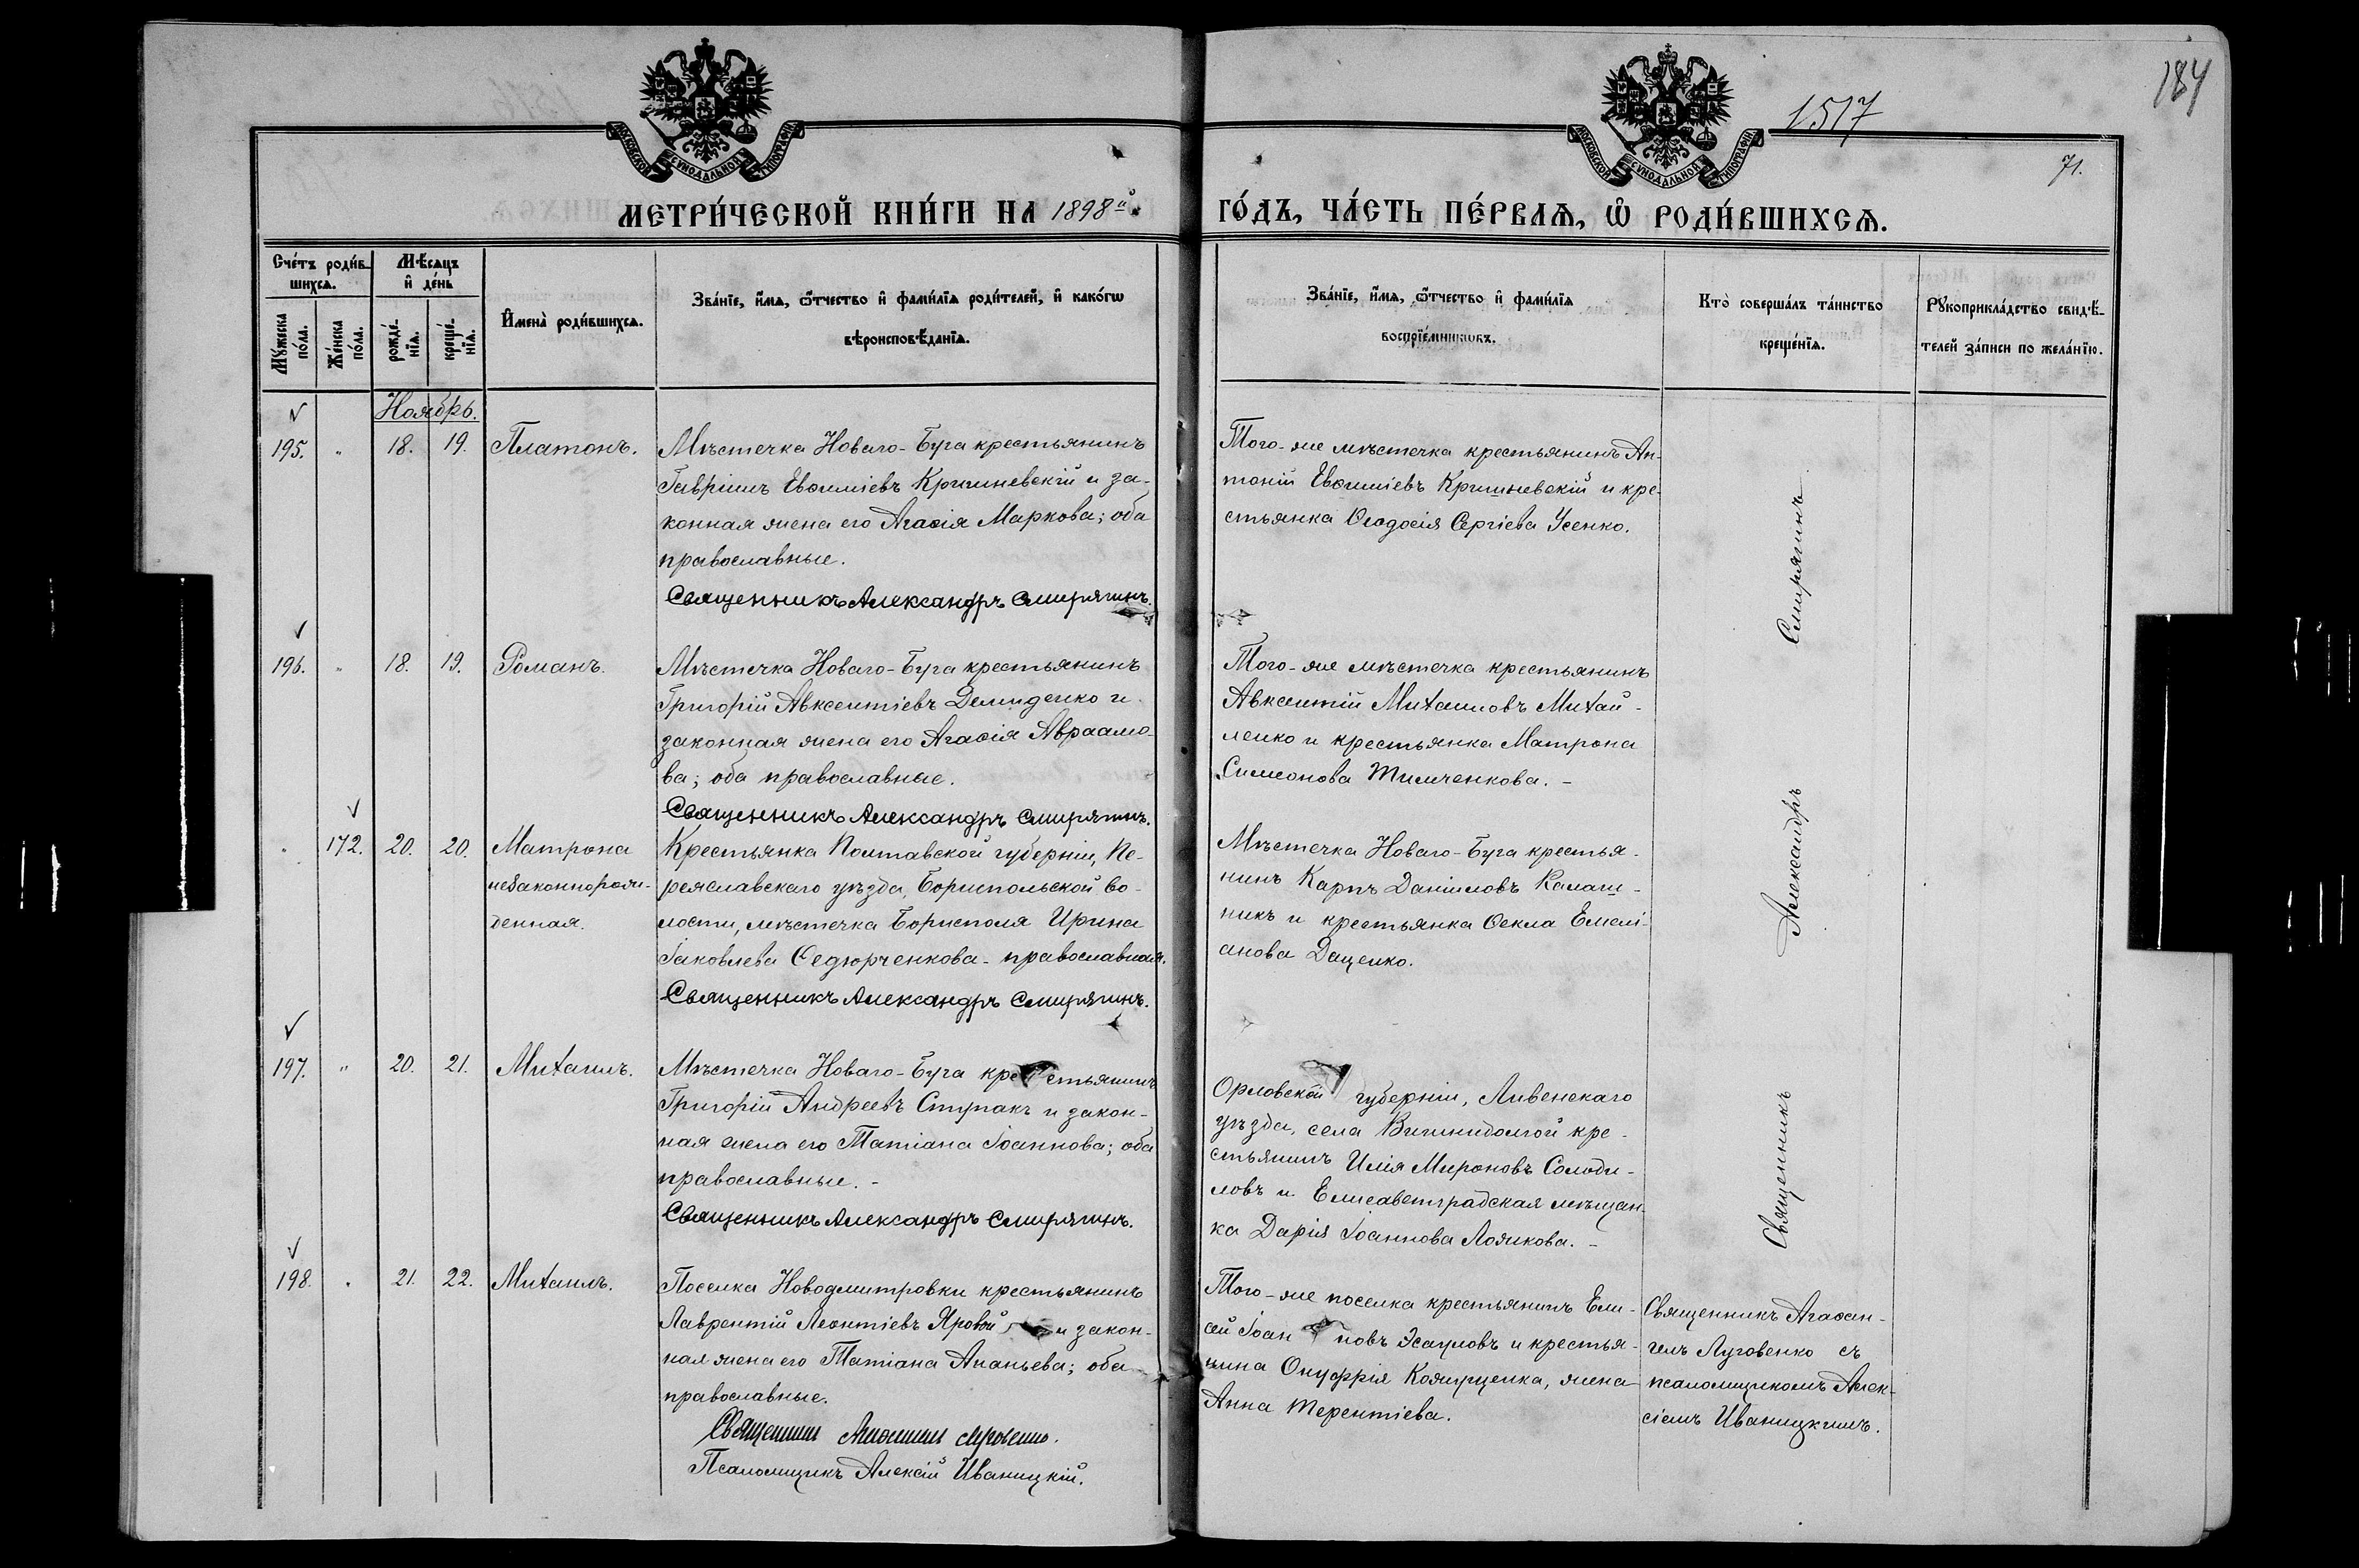 МОСКОВСКОЙ СУНОДАЛЬНОЙ ТИПОГРАФІИ
МОСКОВСКОЙ СУНОДАЛЬНОЙ ТИПОГРАФІИ
1517
184
71.
МЕТРИ́ЧЕСКОЙ КНИ́ГИ НА 1898й
ГО́ДЪ, ЧА́СТЬ ПЕ́РВАѦ, Ѡ҆ РОДИ́ВШИХСѦ.
Сче́тъ роди́в-
шихсѧ.
Мѣ́сѧцъ
и҆ де́нь
Мꙋ́жеска по́ла.
Же́нска по́ла.
рожде́-
нїѧ.
креще́-
нїѧ.
И҆мена̀ роди́вшихсѧ.
Зва́нїе, и҆́мѧ, ѻ҆́тчество и҆ фами́лїѧ роди́телей, и҆ како́гѡ
вѣроисповѣ́данїѧ.
Зва́нїе, и҆́мѧ, ѻ҆́тчество и҆ фами́лїѧ
воспрїе́мникѡвъ.
Кто̀ соверша́лъ та́инство
креще́нїѧ.
Рꙋкоприкла́дство свидѣ́-
телей за́писи по жела́нїю.
Ноябрь.
195. " 18. 19. Платонъ.
Мѣстечка Новаго-Буга крестьянинъ
Гавріилъ Евѳиміевъ Кришневскій и за-
конная жена его Агаѳія Маркова; оба
православные.
Священникъ Александръ Смирягинъ.
Того-же мѣстечка крестьянинъ Ан-
тоній Евѳиміевъ Кришневскій и кре-
стьянка Ѳеодосія Сергіева Усенко.
196. " 18. 19. Романъ.
Мѣстечка Новаго-Буга крестьянинъ
Григорій Авксентіевъ Демиденко и
законная жена его Агаѳія Авраамо-
ва; оба православные.
Священникъ Александръ Смирягинъ.
Того-же мѣстечка крестьянинъ
Авксентій Михаиловъ Михай-
ленко и крестьянка Матрона
Симеонова Тимченкова. -
" 172. 20. 20. Матрона
незаконнорож-
денная.
Крестьянка Полтавской губерніи, Пе-
реяславскаго уѣзда, Бориспольской во-
лости, мѣстечка Борисполя Ирина
Іаковлева Ѳедюрченкова - православная.
Священникъ Александръ Смирягинъ.
Мѣстечка Новаго-Буга крестья-
нинъ Карпъ Даніиловъ Калаш-
никъ и крестьянка Ѳекла Емелі-
анова Даценко.
197. " 20. 21. Михаилъ.
Мѣстечка Новаго-Буга крестьянинъ
Григорій Андреевъ Ступакъ и закон-
ная жена его Татіана Іоаннова; оба
православные. -
Священникъ Александръ Смирягинъ.
Орловской губерніи, Ливенскаго
уѣзда, села Вышнидолгой кре-
стьянинъ Илія Мироновъ Солоди-
ловъ и Елисаветградская мѣщан-
ка Дарія Іоаннова Ложкова. -
Священникъ Александръ Смирягинъ
198. " 21. 22. Михаилъ.
Поселка Новодмитровки крестьянинъ
Лаврентій Леонтіевъ Яровой и закон-
ная жена его Татіана Ананьева; оба
православные.
Священникъ Агаѳангелъ Луговенко.
Псаломщикъ Алексій Иваницкій.
Того-же поселка крестьянинъ Ели-
сей Іоанновъ Эсауловъ и крестья-
нина Онуфрія Кожурценка, жена
Анна Терентіева.
Священникъ Агаѳан-
гелъ Луговенко съ
псаломщикомъ Алек-
сіемъ Иваницкимъ.